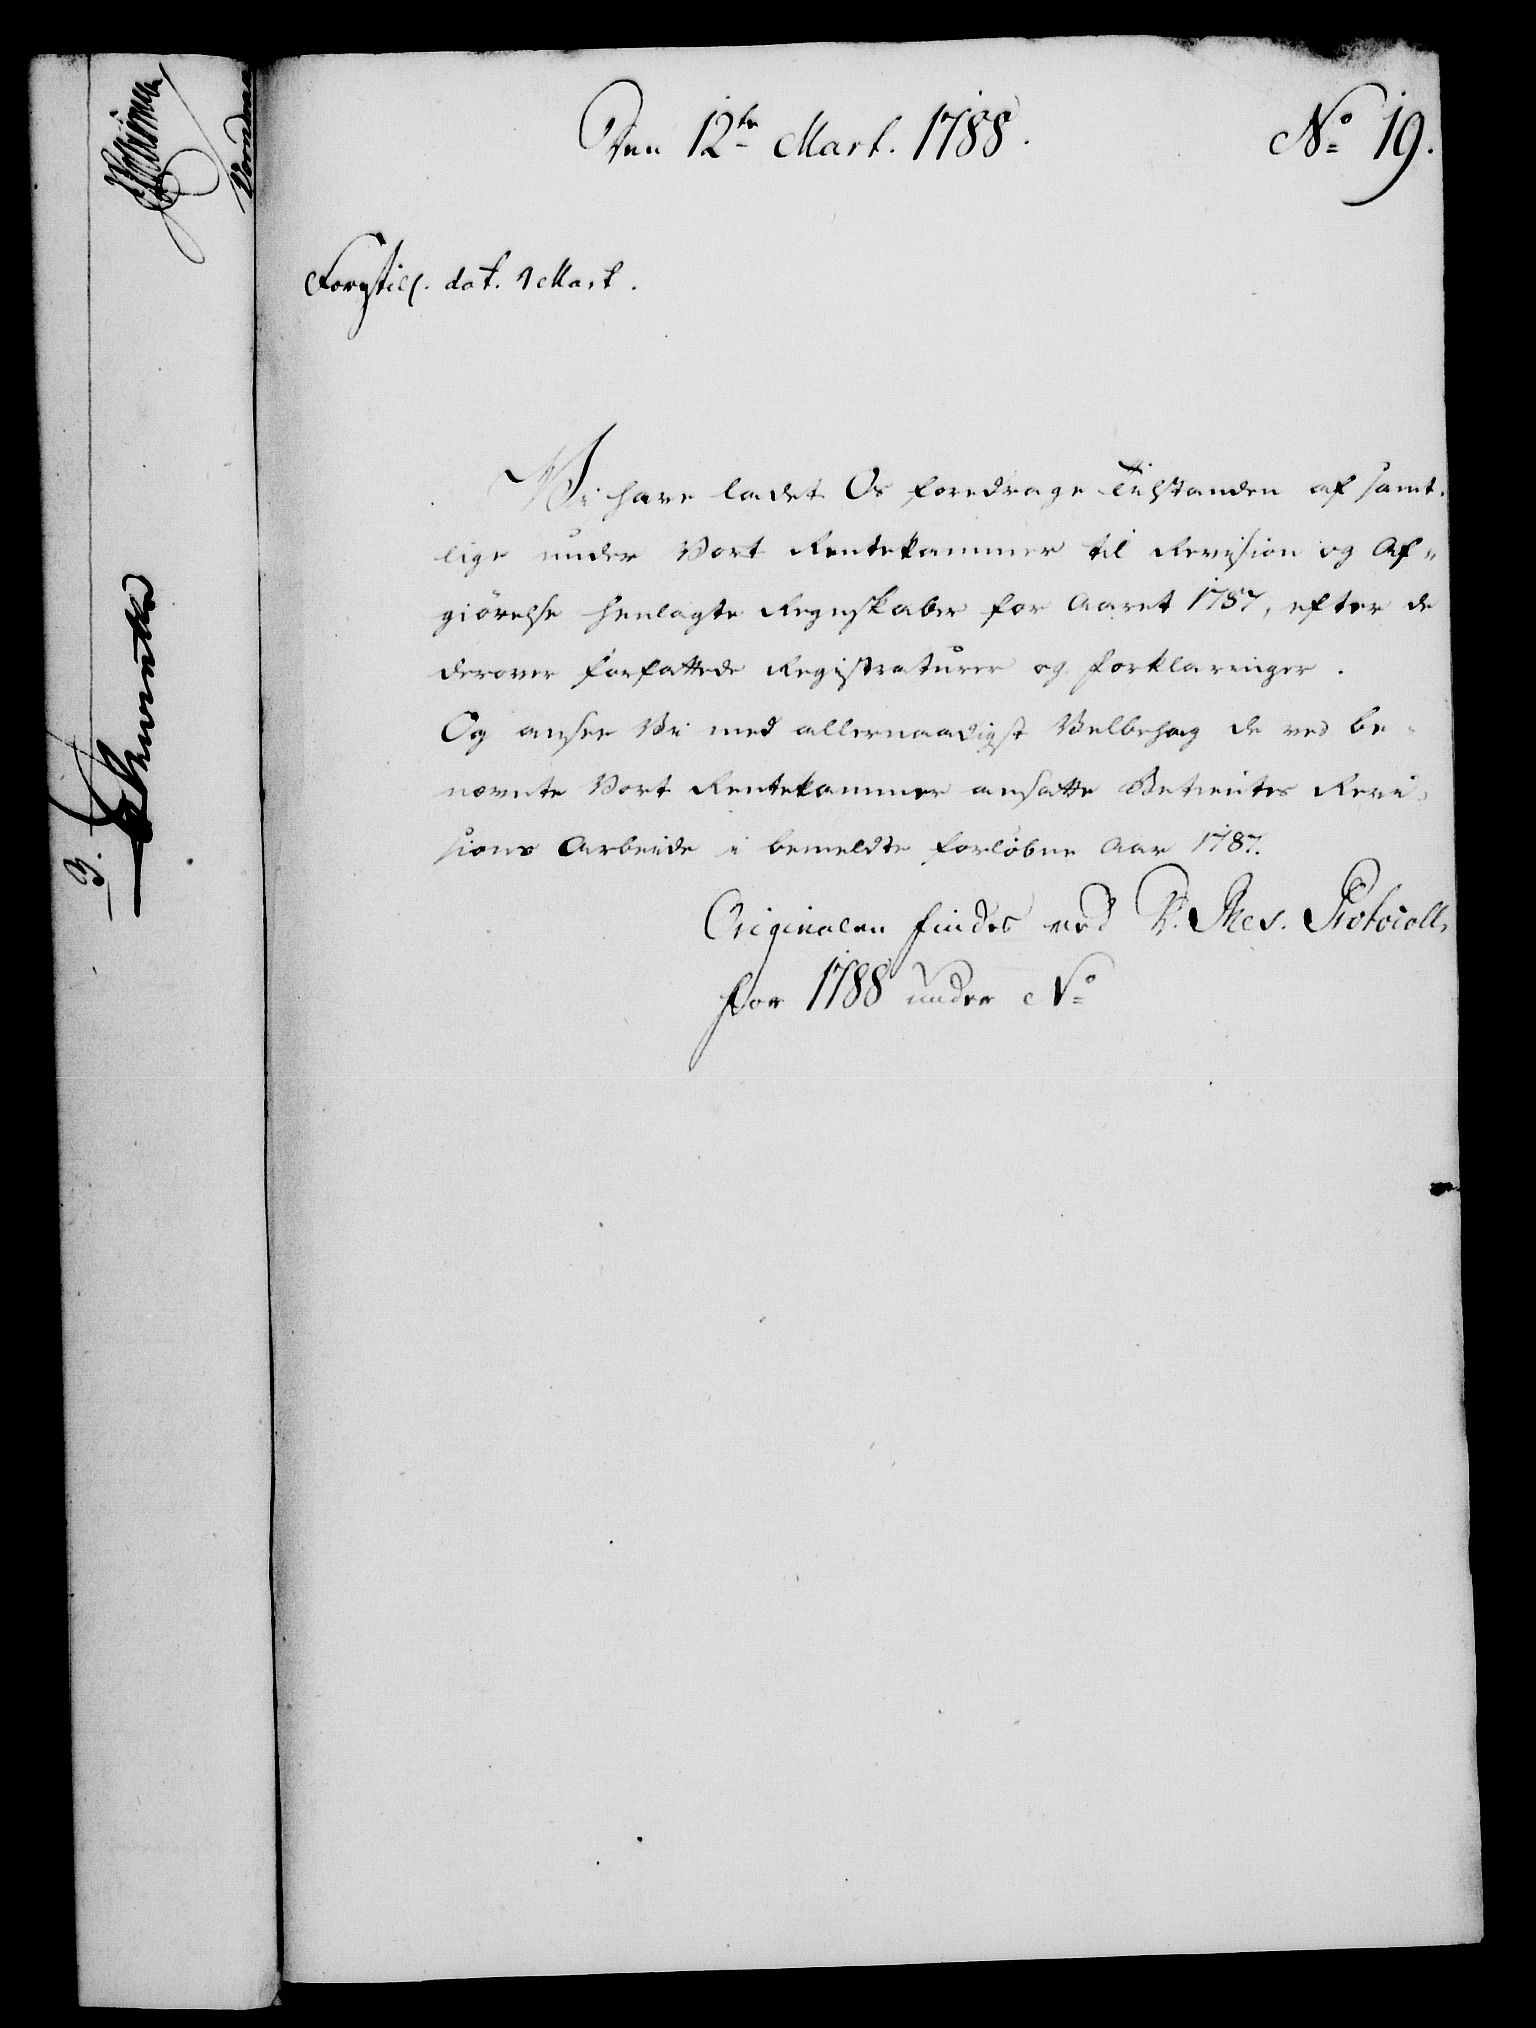 Den 12te Mart. 1788.
No 19.
Forestill. dat. 1 Mart.
Vi have ladet Os foredrage Tilstanden af samt-
lige under Vort Rentekammer til Revision og Af-
giörelse henlagte Regnskaber for Aaret 1787, efter de
derover forfattede Registraturer og Forklaringer.
Og ansee Vi med allernaadigst Velbehag de ved be-
nævnte Vort Rentekammer ansatte Betientes Revi-
sions Arbeide i bemeldte forløbne Aar 1787.
Originalen findes ved R. Res. Protocoll,
for 1788 under No